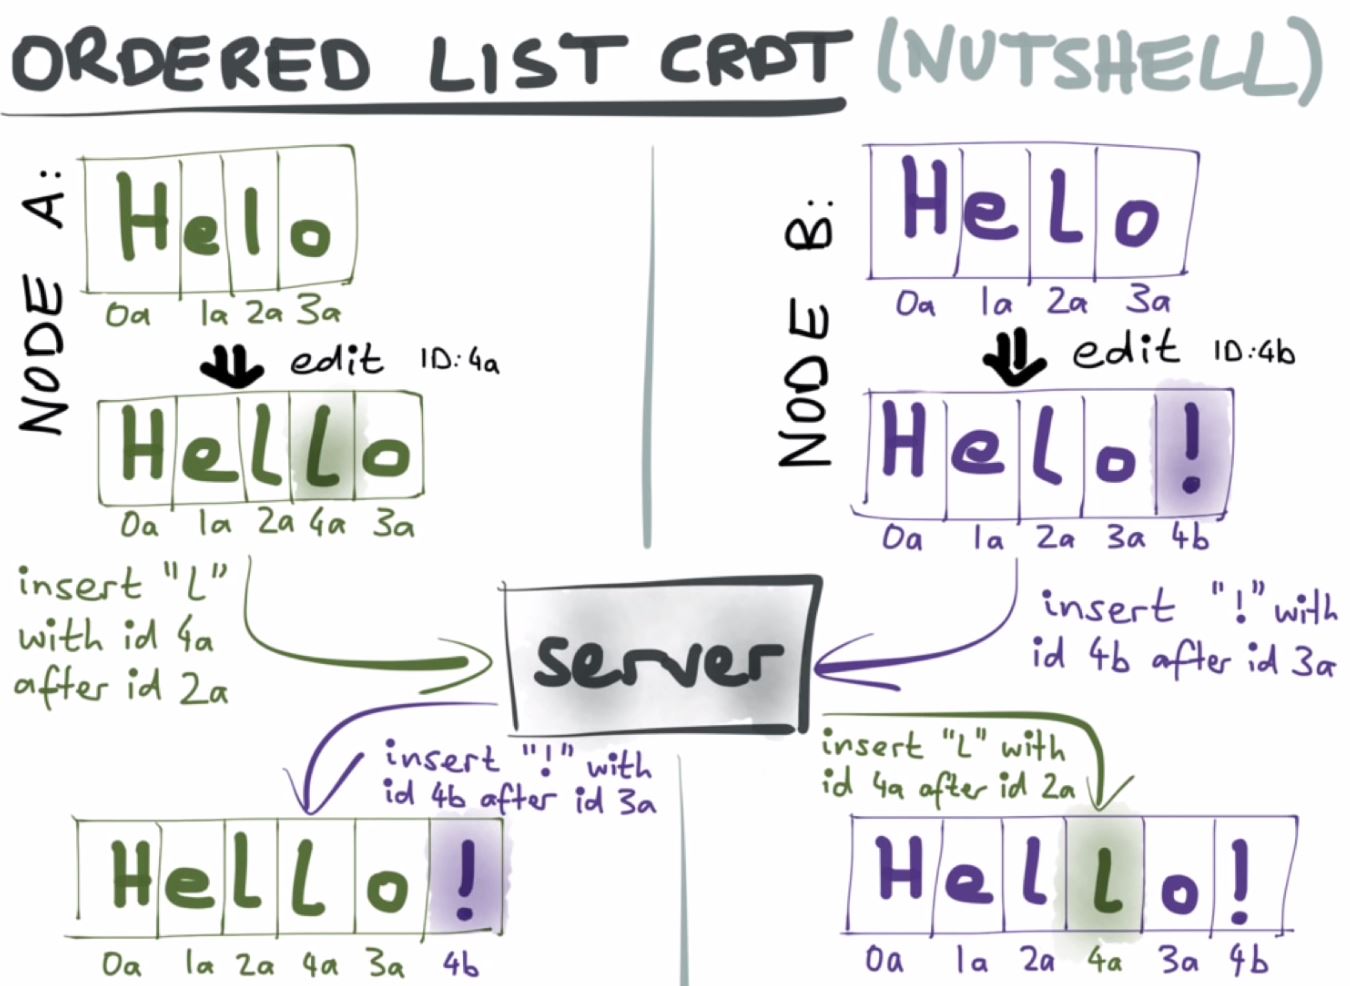 ORDERED LIST CRDT (NUTSHELL)
NODE A:
Helo
0a 1a 2a 3a
edit ID:4a
HelLo
0a 1a 2a 4a 3a
insert "L"
with id 4a
after id 2a
NODE B:
HeLo
0a 1a 2a 3a
edit ID:4b
Helo!
0a 1a 2a 3a 4b
insert "!" with
id 4b after id 3a
server
insert "!" with
id 4b after id 3a
HeLLo!
0a 1a 2a 4a 3a 4b
insert "L" with
id 4a after id 2a
HelLo!
0a 1a 2a 4a 3a 4b